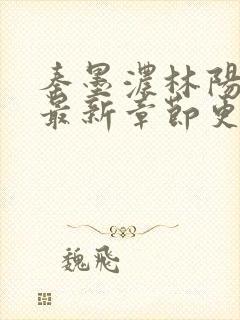 秦墨濃林陽
最新章節更
魏飛